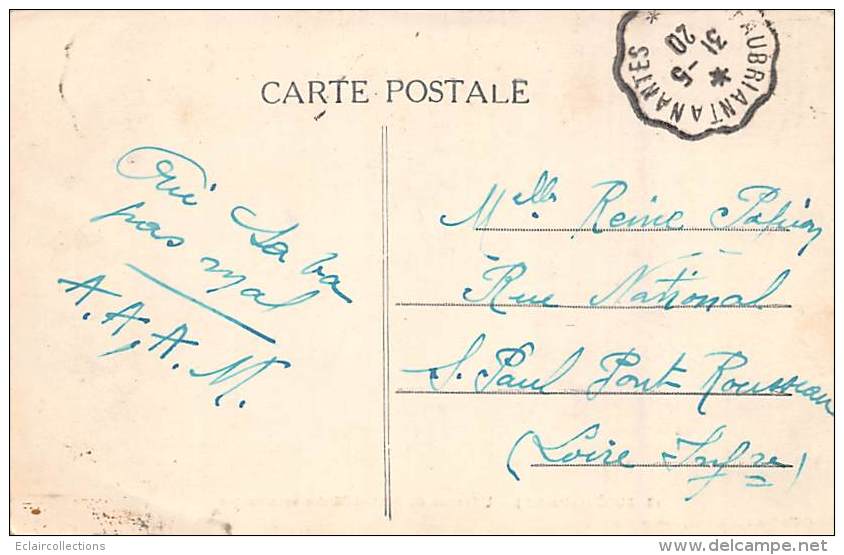 CARTE POSTALE
TAUBRIANT A NANTES
31 -5
20
Oui sa va
pas mal
A. A, A. M.
Melle Reine Papion
Rue National
S. Paul Pont Rousseau
(Loire Infre)
Eclaircollections
www.delcampe.net